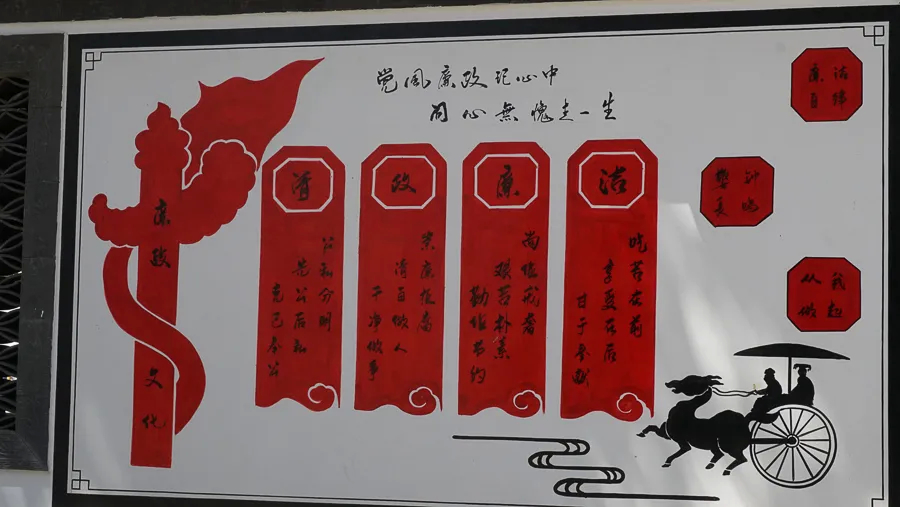 党风廉政记心中
问心無愧走一生
廉政
文化
清
公私分明
先公后私
克己奉公
政
崇廉拒腐
清白做人
干净做事
廉
尚俭戒奢
艰苦朴素
勤俭节约
洁
吃苦在前
享受在后
甘于奉献
廉洁
自律
警钟
长鸣
从我
做起